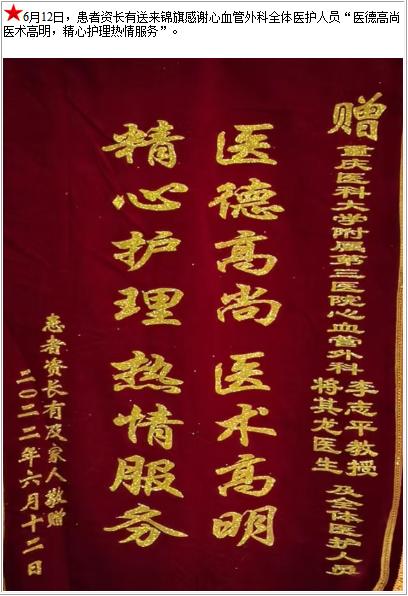 ★6月12日，患者资长有送来锦旗感谢心血管外科全体医护人员“医德高尚
医术高明，精心护理热情服务”。
赠
重庆医科大学附属第三医院心血管外科
李志平教授
将其龙医生
及全体医护人员
医德高尚 医术高明
精心护理 热情服务
患者资长有及家人敬赠
二〇二二年六月十二日